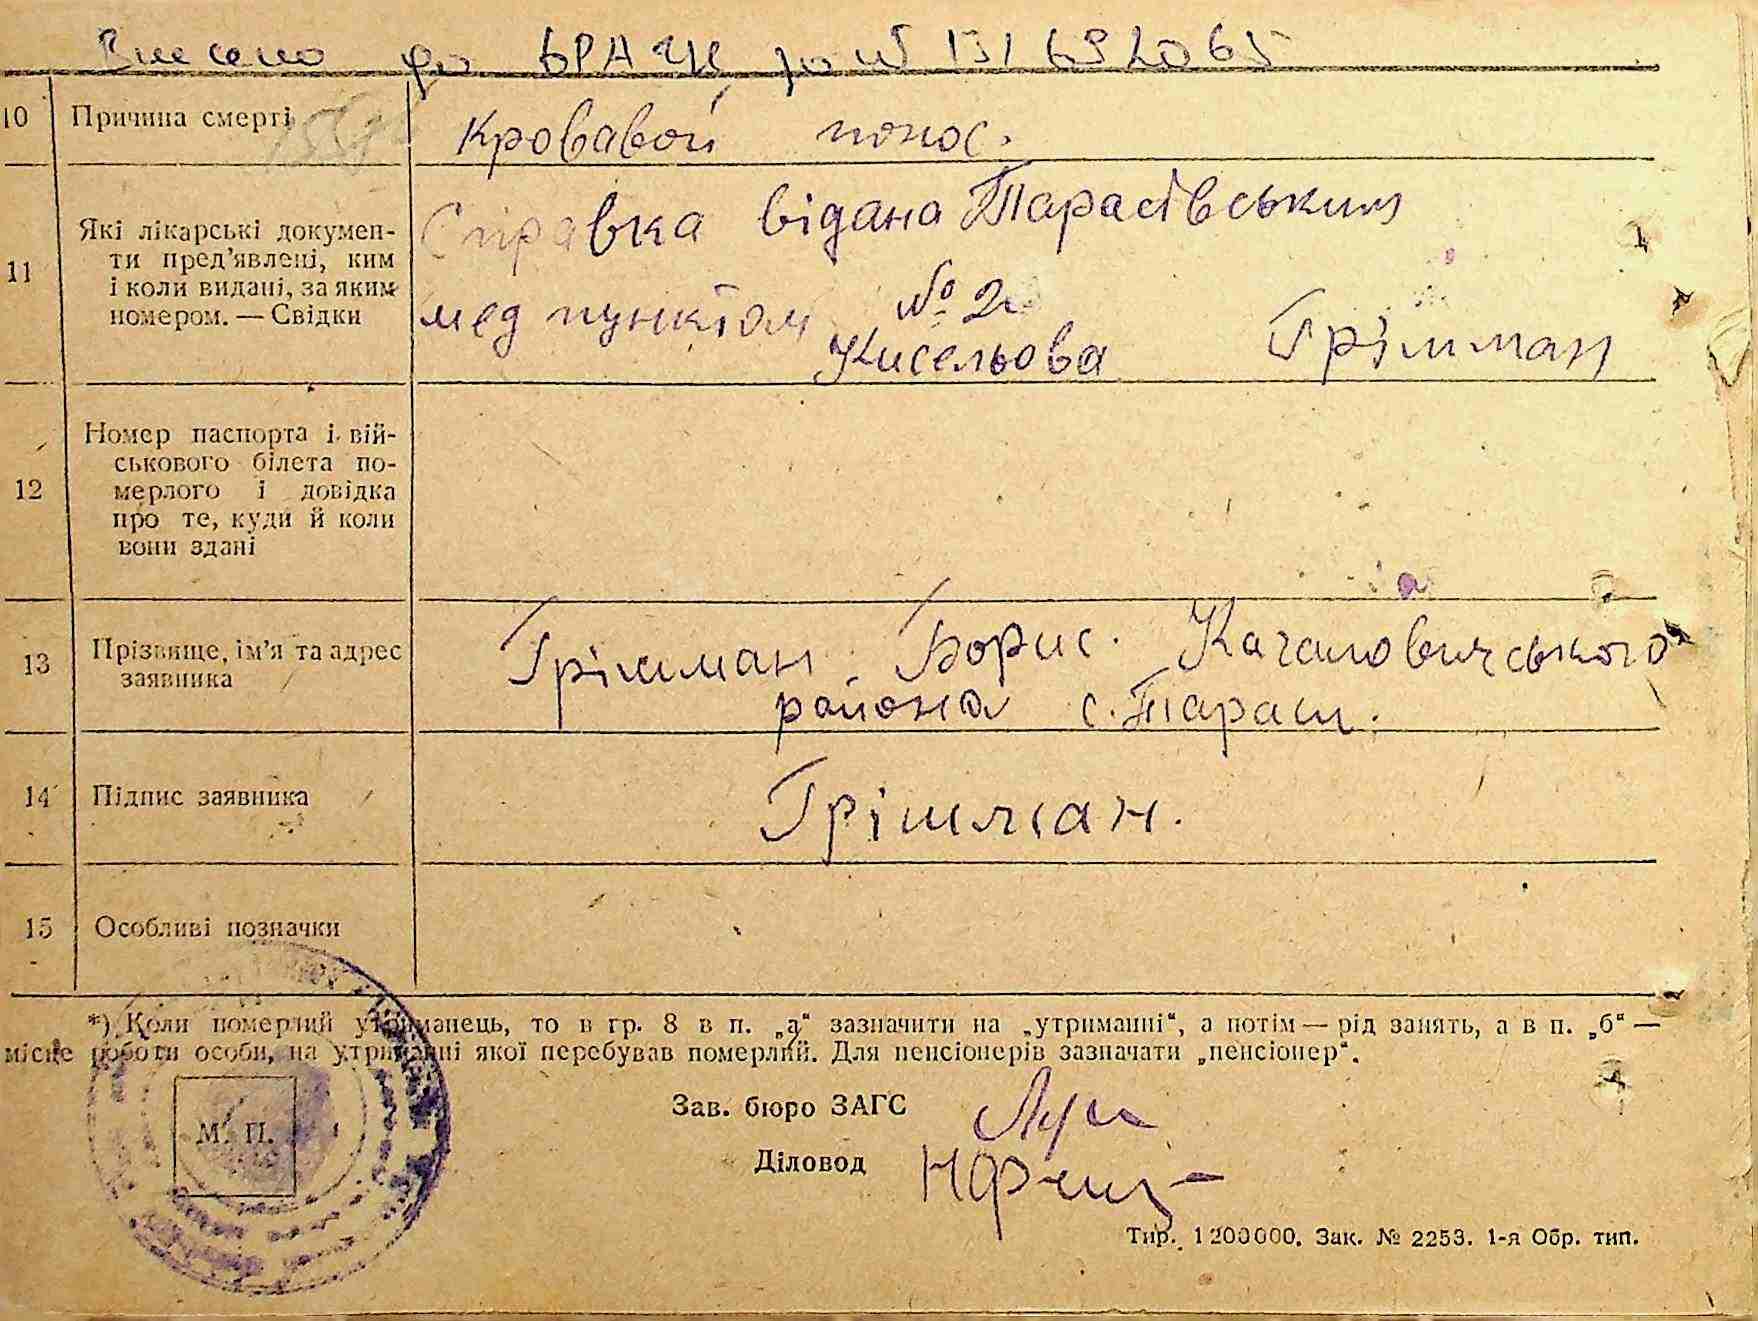 Внесено до ДРАЦС за №
10 Причина смерті Кровавой понос.
11 Які лікарські докумен-
ти пред'явлені, ким
і коли видані, за яким
номером. — Свідки
Справка відана Тарасівським
мед пунктом № 2
Кисельова Грішман
12 Номер паспорта і вій-
ськового білета по-
мерлого і довідка
про те, куди й коли
вони здані
13 Прізвище, ім'я та адрес
заявника
Грішман Борис. Качановичського
района с. Тарас
14 Підпис заявника Грішман.
15 Особливі позначки
*) Коли померлий утриманець, то в гр. 8 в п. „а“ зазначити на „утриманні“, а потім — рід занять, а в п. „б“ —
місце роботи особи, на утриманні якої перебував померлий. Для пенсіонерів зазначати „пенсіонер“.
Зав. бюро ЗАГС
Діловод
М. П.
Тир. 1200000. Зак. № 2253. 1-я Обр. тип.